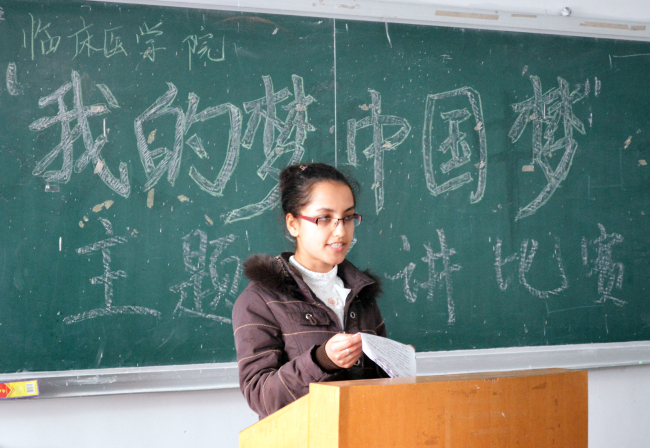 临床医学院
“我的梦中国梦”
主题 讲比赛